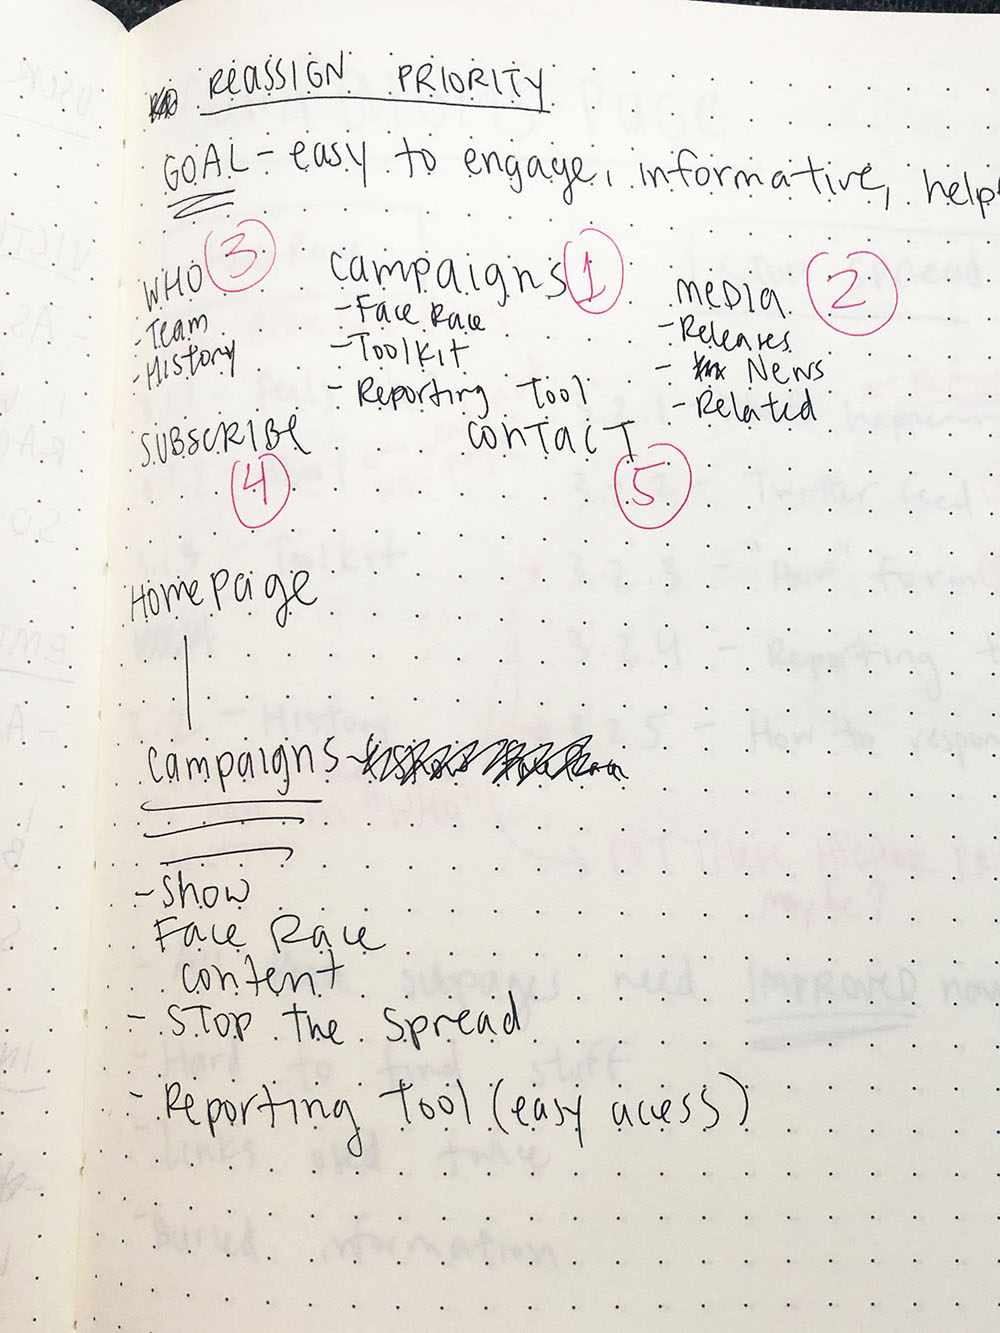 REASSIGN PRIORITY
GOAL - easy to engage, informative, help
WHO 3
- Team
- History
Campaigns 1
- Face Race
- Toolkit
- Reporting Tool
MEDIA 2
- Releases
- News
- Related
SUBSCRIBE
4
CONTACT
5
Homepage
Campaigns -
- Show
Face Race
content
- STOP the Spread
- Reporting Tool (easy access)